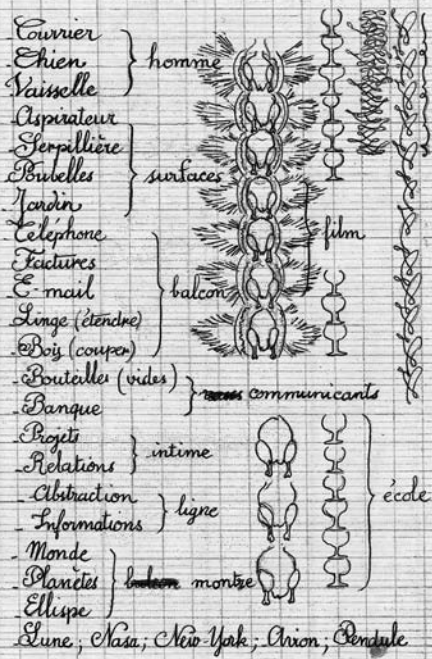 Courrier
- Chien
Vaisselle
homme
- Aspirateur
- Serpillière
- Poubelles
- Jardin
surfaces
- Téléphone
Factures
- E-mail
- Linge (étendre)
- Bois (couper)
balcon
film
- Bouteilles (vides)
- Banque
communicants
- Projets
- Relations
intime
- Abstraction
- Informations
ligne
- Monde
- Planètes
Ellispe
montre
école
- Lune ; Nasa ; New-York ; Avion ; Pendule